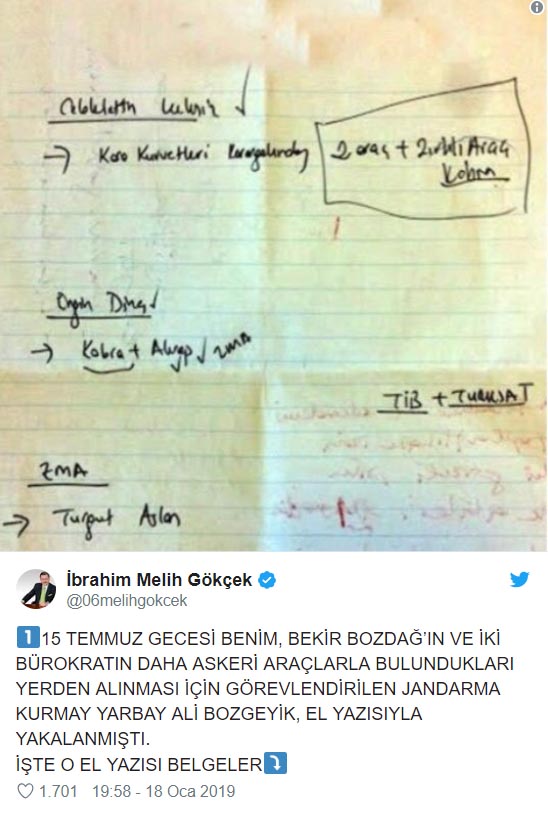 Celalettin Lekesiz
→ Kara Kuvvetleri
2 araç + Zırhlı Araç
Kobra
Engin Dinç
→ Kobra + Akrep ZMA
TİB + TURKSAT
ZMA
→ Turgut Aslan
İbrahim Melih Gökçek
@06melihgokcek
1 15 TEMMUZ GECESİ BENİM, BEKİR BOZDAĞ’IN VE İKİ
BÜROKRATIN DAHA ASKERİ ARAÇLARLA BULUNDUKLARI
YERDEN ALINMASI İÇİN GÖREVLENDİRİLEN JANDARMA
KURMAY YARBAY ALİ BOZGEYİK, EL YAZISIYLA
YAKALANMIŞTI.
İŞTE O EL YAZISI BELGELER⤵
1.701 19:58 - 18 Oca 2019